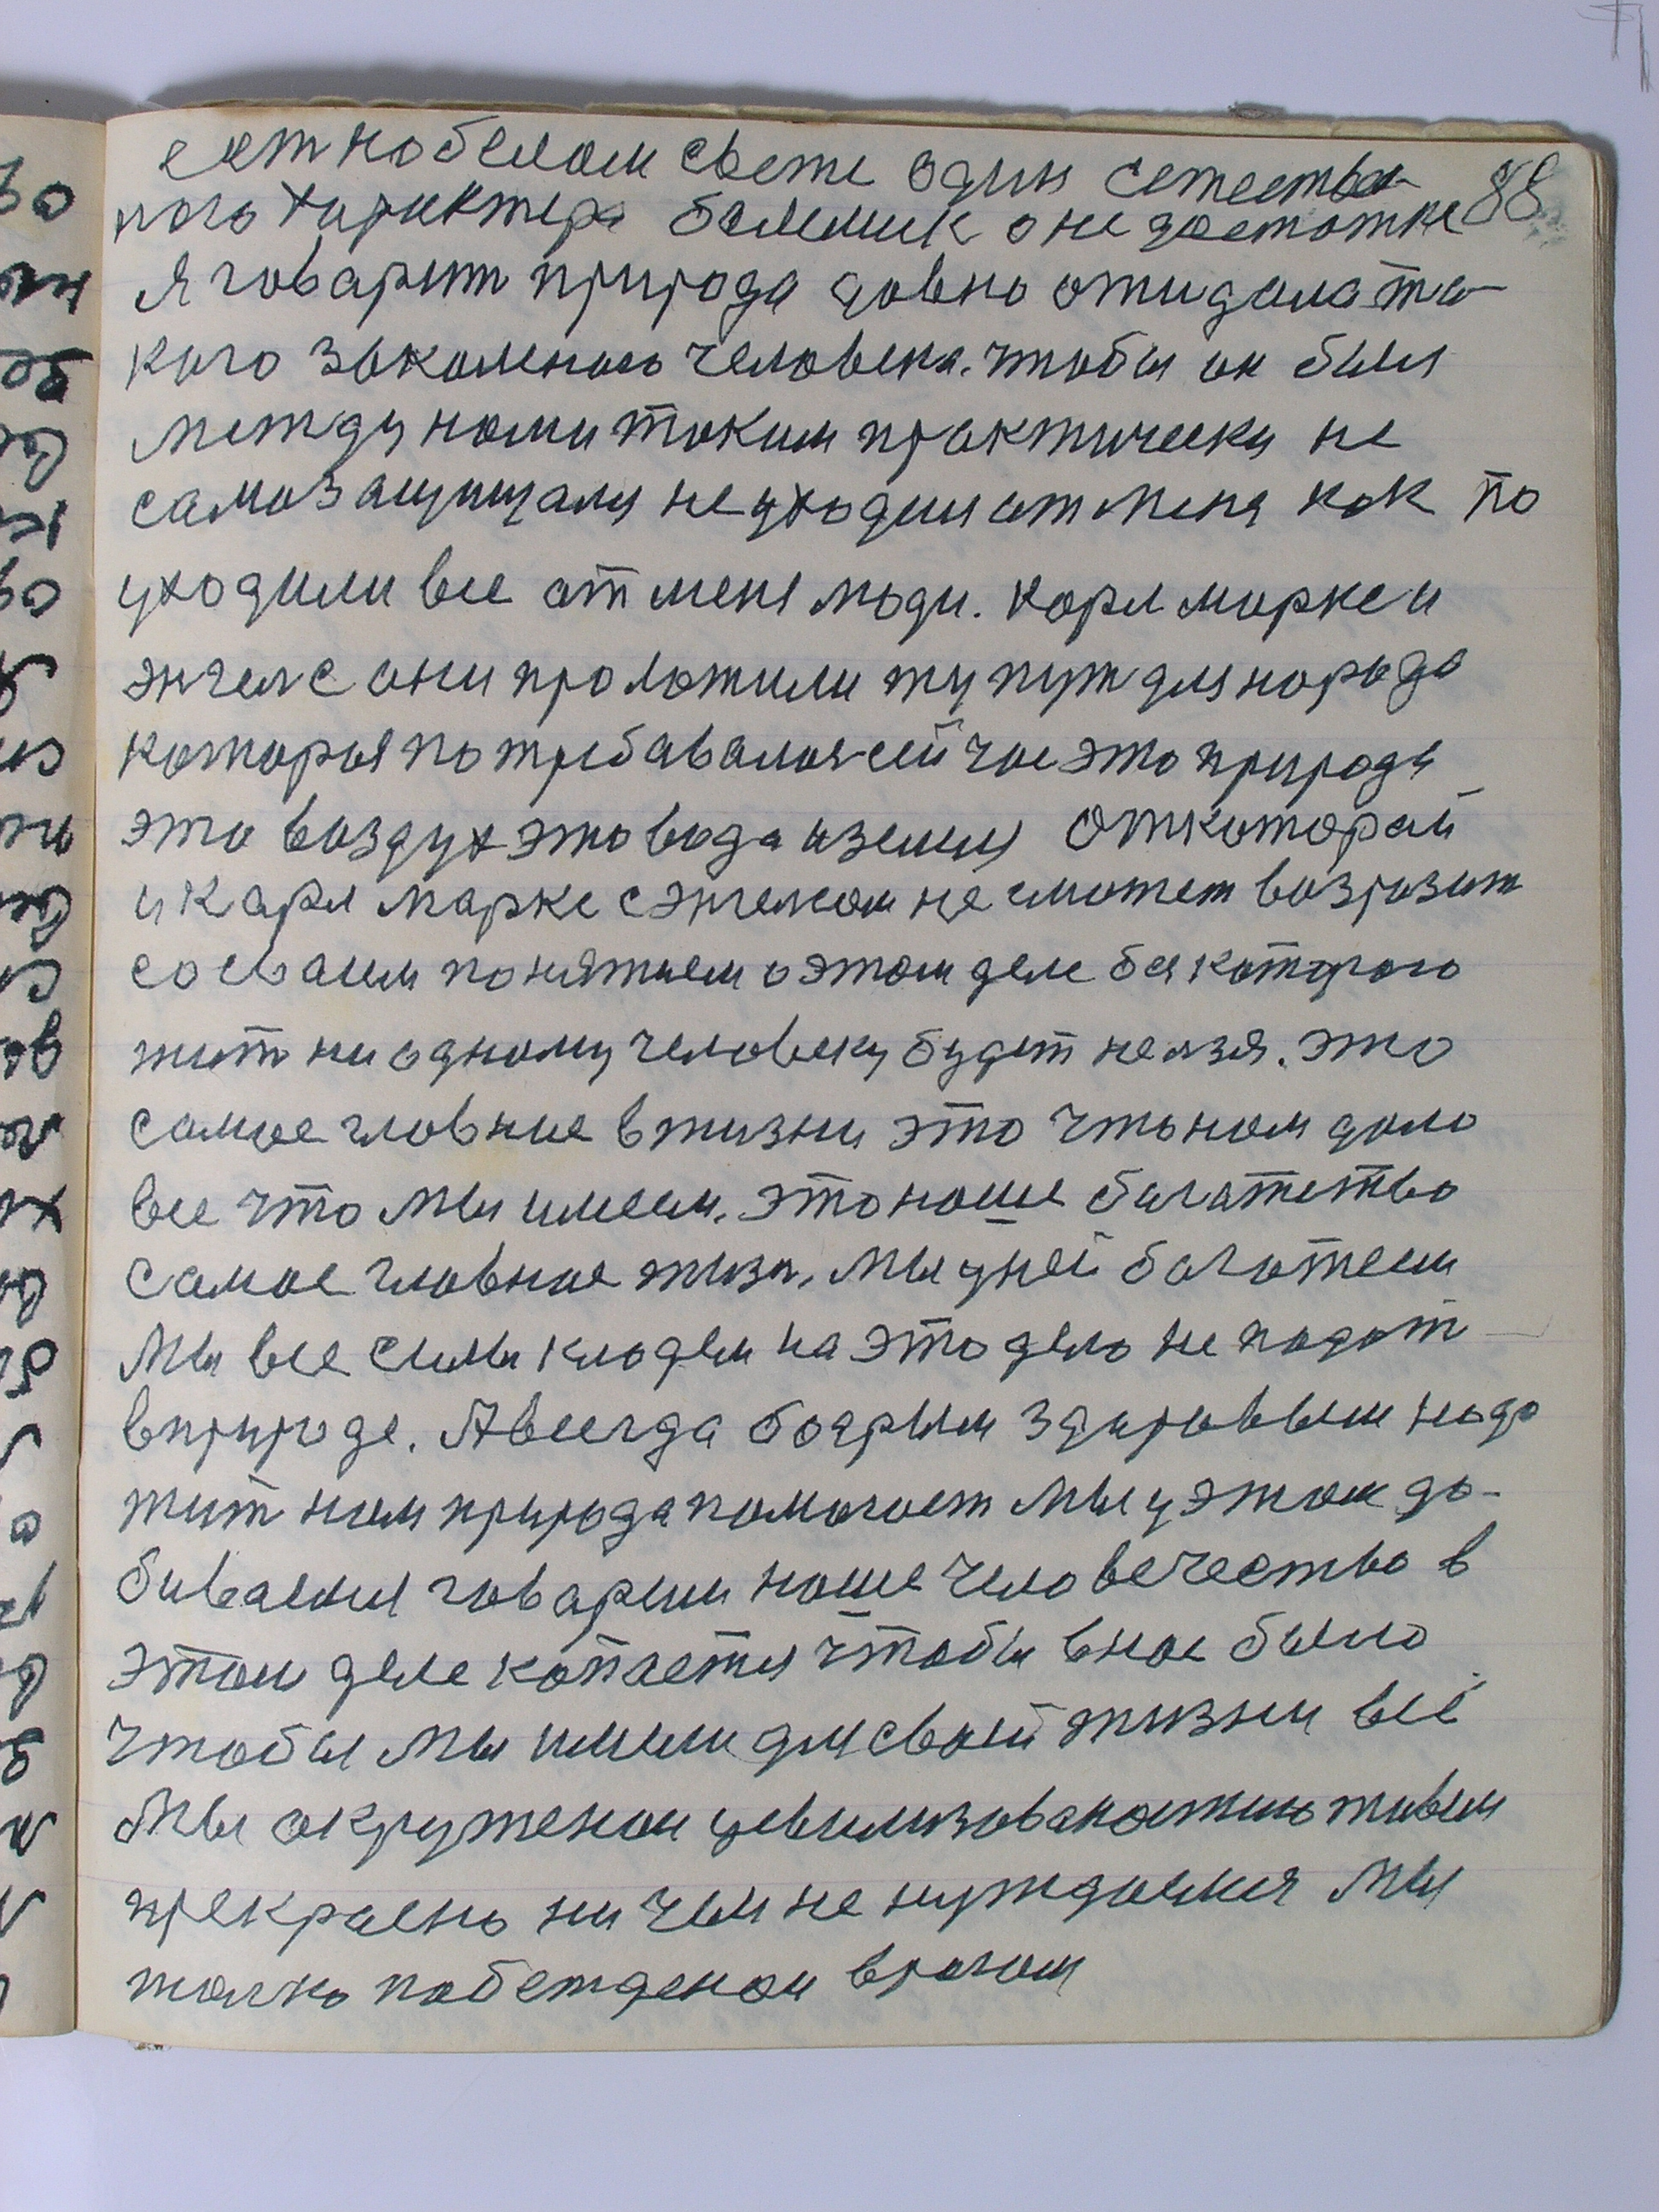 ест на белом свете один естествен- 88
ного характера болемик о не достатке
Я говарит природа давно ожидала та-
кого закаленого человека. чтобы он был
между нами таким практически не
самозащищался не уходил от меня как по
уходили все от меня люди. Карл маркс и
энгелс они проложили ту пут для народа
которыя потребавался сейчас это природа
это воздух это вода и земля От которай
и Карл Маркс с энгелсом не сможет возразит
со сваим понятием о этом деле без которого
жит ни одному человеку будет нелзя. это
самое главное в жизни это что нам дало
все что мы имеем. это наше багатство
самое главное жизн. Мы у ней багатеем
Мы все силы кладем на это дело не падат
в природе. А всегда бодрым здаровым надо
жит нам природа помогает мы у этом до-
биваемся говарим наше человечество в
этом деле копается чтобы в нас было
чтобы мы имели для своей жизни всё
Мы окружоном цивилизованостию живем
прекрасно ни чем не нуждаемся Мы
толко побежденои врагом